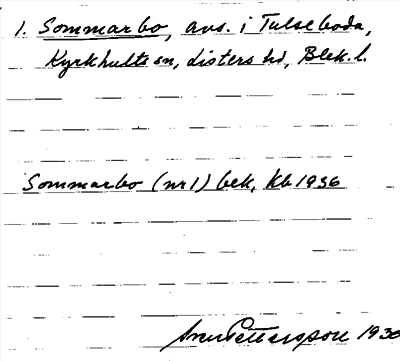 1. Sommarbo, avs. i Tulseboda,
Kyrkhults sn, Listers hd, Blek. l.
Sommarbo (nr 1) bek, Kb 1936
Pettersson 1936